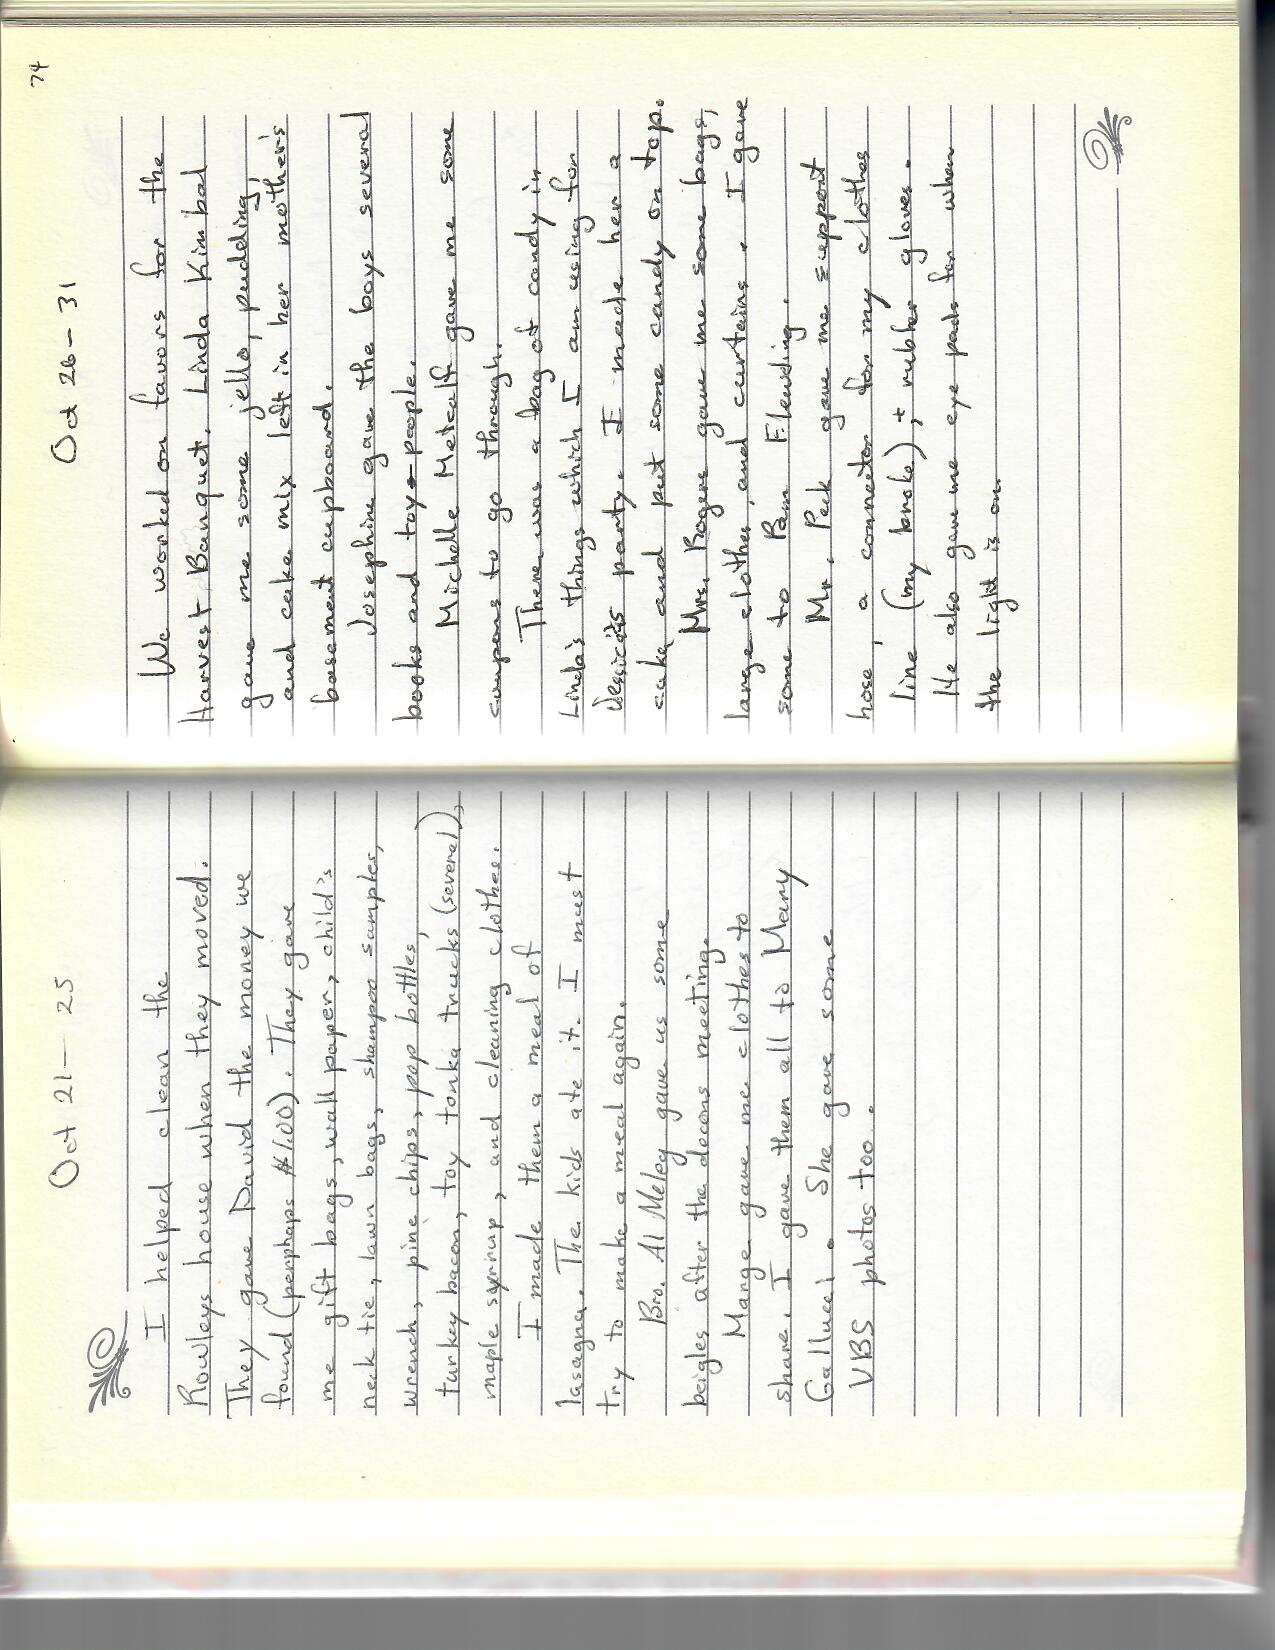 Oct 21 - 25
I helped clean the
Rowleys house when they moved.
They gave David the money we
found (perphaps $1.00). They gave
me gift bags, wall paper, child's
neck tie, lawn bags, shampoo samples,
wrench, pine chips, pop bottles,
turkey bacon, toy tonka trucks (several),
maple syrup, and cleaning clothes.
I made them a meal of
lasagna. The kids ate it. I must
try to make a meal again.
Bro. Al Meley gave us some
beigles after the decons meeting.
Marge gave me clothes to
share. I gave them all to Mary
Gallucci. She gave some
VBS photos too.
74
Oct 26 - 31
We worked on favors for the
Harvest Banquet. Linda Kimbal
gave me some jello, pudding,
and cake mix left in her mother's
basement cupboard.
Josephine gave the boys several
books and toy people.
Michelle Metcalf gave me some
coupons to go through.
There was a bag of candy in
Linda's things which I am using for
Jessica's party. I made her a
cake and put some candy on top.
Mrs. Rogers gave me some bags,
large clothes, and curtains. I gave
some to Pam Fleuding.
Mr. Peck gave me support
hose, a connector for my clothes
line (my broke), + rubber gloves.
He also gave me eye pads for when
the light is on.